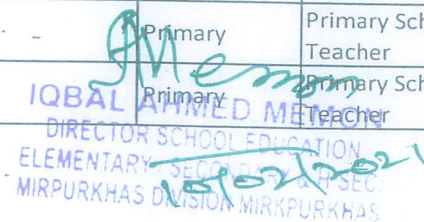 Primary Primary Sch
Teacher
Memon
Primary Primary Sch
Teacher
IQBAL AHMED MEMON
DIRECTOR SCHOOL EDUCATION
ELEMENTARY SECONDARY & H-SEC.
MIRPURKHAS DIVISION MIRKPURKHAS
10/02/2021